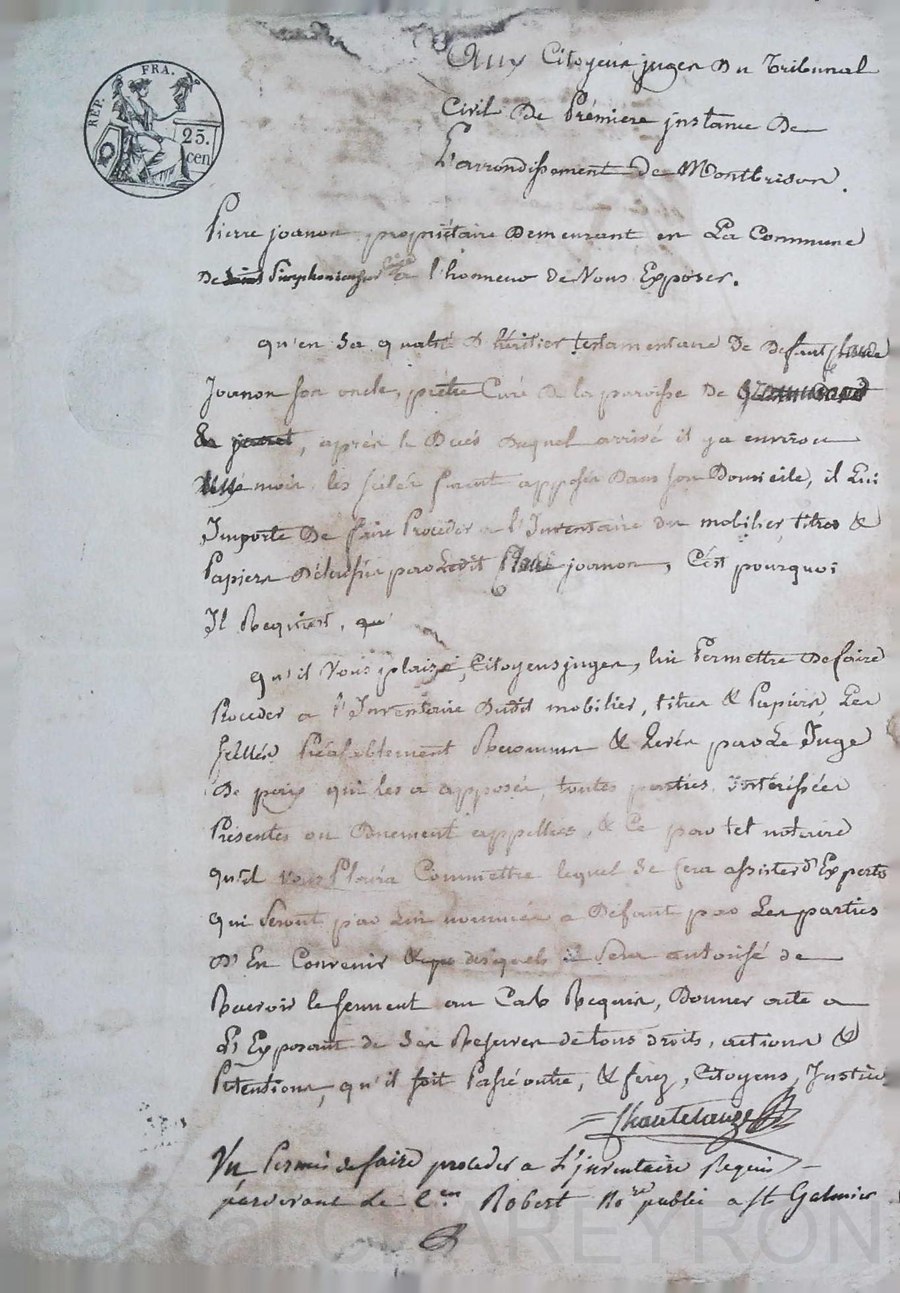 REP. FRA.
25.
cen
Aux Citoyens juges Du Tribunal
Civil De Prémiere jnstance De
L'arrondissement De Montbrison.
Pierre joanon propriétaire Demeurant en La Commune
De l'honneur de Vous Exposer.
qu'en sa qualité D'héritier testamentaire De defunt
Joanon son oncle, prêtre Curé de la paroisse De
, après le Decés Duquel arrivé il ya environ
mois, les scélés furent apposés Dans son Domicile, il Lui
Jmporte De faire Proceder a l'Inventaire du mobilier, titres &
Papiers Délaissés par Ledit joanon, C'est pourquoi
Il Requiert,
qu'il Vous plaise, Citoyens juges, lui Permettre De faire
Proceder a l'Inventaire Dudit mobilier, titres & Papiers, Les
scellés Préalablement Reconnus & Levés par Le Juge
De paix qui les a apposés, toutes parties intéressées
Présentes ou Dument appellées, & Ce par tel notaire
qu'il vous Plaira Commettre lequel se fera assister d'Experts
qui seront par Lui nommés a Défaut par Les parties
D'En Convenir desquels il sera autorisé de
Recevoir le serment au Cas Requis, Donner acte a
L'Exposant de ses Reserves de tous droits, actions &
Pétentions, qu'il soit Passé outre, & ferez, Citoyens, Justice
Chantelauze
Vu Permis de faire proceder a L'jnventaire Requis
pardevant Le C.en Robert No.re public a st Galmier
Pascal CHAREYRON